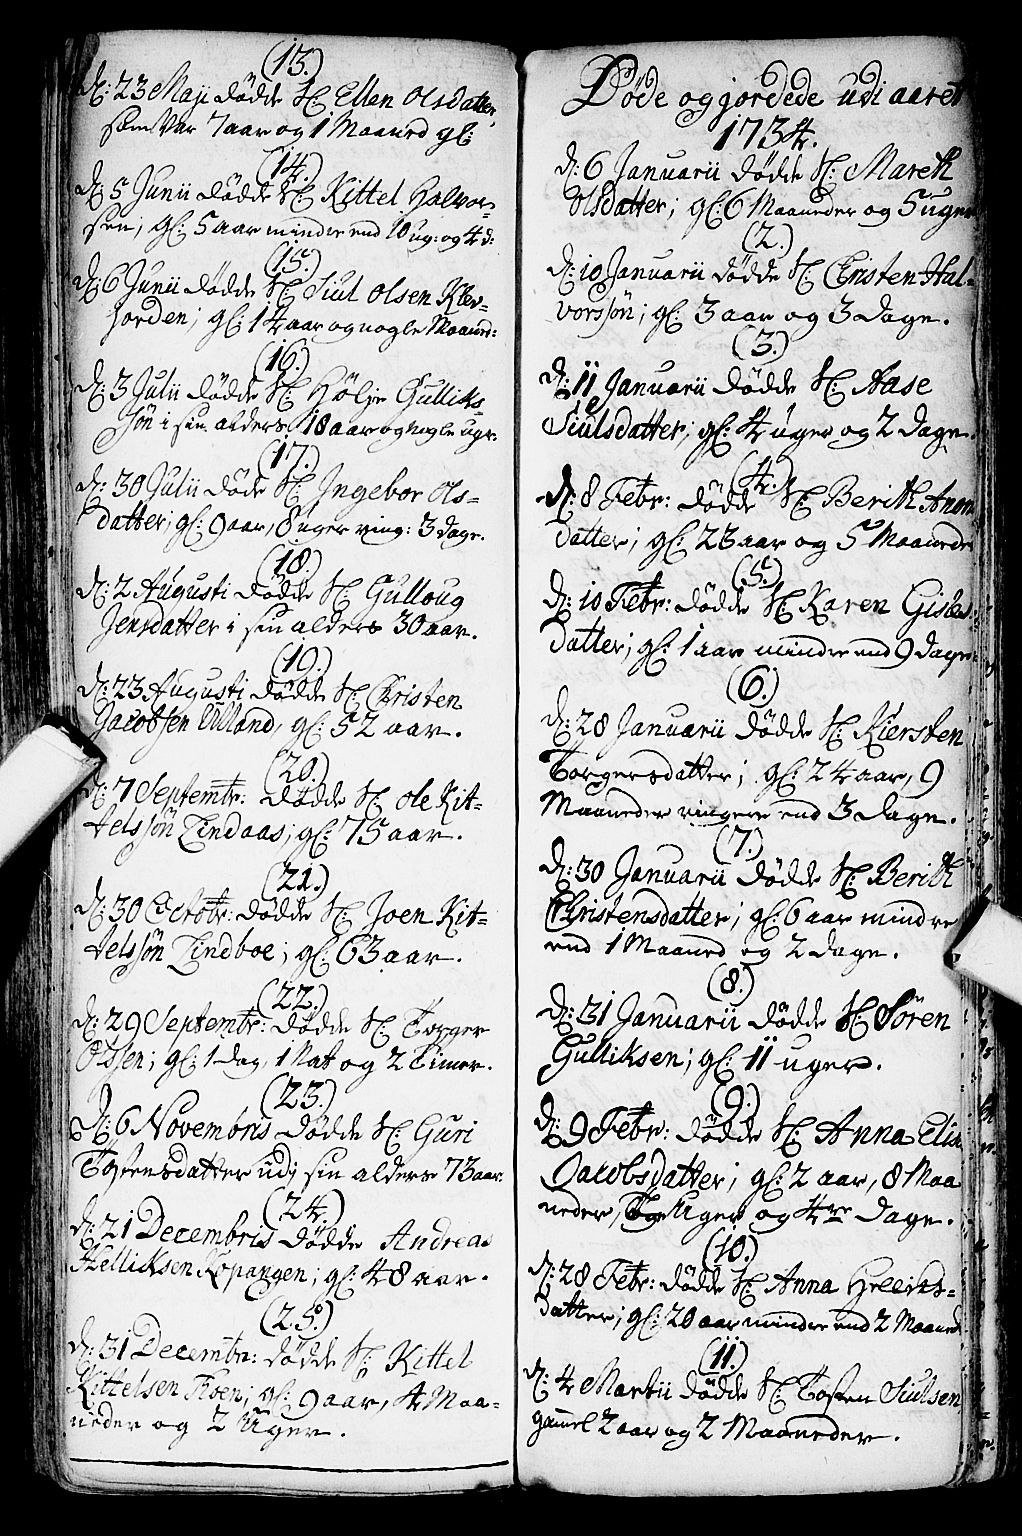 (13.)
d: 23 Maji dödde N: Ellen Olsdatter,
som var 7 aar og 1 Maaned gl:
(14.)
d: 5 Junii dödde N: Kittel Halvor-
sen; gl: 5 aar mindre end 10 ug: og 4 d:
(15.)
d: 6 Junii dödde N: Siul Olsen Klev-
jorden; gl: 14 aar og nogle Maaned:
(16.)
d: 3 Julii dödde N: Hölje Gulliks-
sön i sin alders 18 aar og nogle uger.
(17.)
d: 30 Julii döde N: Ingebor Ols-
datter; gl: 9 aar, 8 uger ring: 3 dage.
(18.)
d: 2 Augusti dödde N: Gulloug
Jensdatter i sin alders 30 aar.
(19.)
d: 23 Augusti dödde N: Christen
Jacobsen Ulland, gl: 52 aar.
(20.)
d: 7 Septembr: dödde N: Ole Kit-
telssön Lindaas; gl: 75 aar.
(21.)
d: 30 Octobr: dödde N: Joen Kit-
telssön Lindboe; gl: 63 aar.
(22.)
d: 29 Septembr: dödde N: Torger
Olssen; gl: 1 dag, 1 Nat og 2 Timer.
(23.)
d: 6 Novembris dödde N: Guri
Tostensdatter udj sin alders 73 aar.
(24.)
d: 21 Decembris dödde Andreas
Helliksen Kopangen; gl: 48 aar.
(25.)
d: 31 Decembr: dödde N: Kittel
Kittelsen; gl: 9 aar, 4 Maa-
neder og 2 Uger.
Döde og jordede udi aaret
1734.
d: 6 Januarii dödde N: Mareth
Olsdatter; gl: 6 Maaneder og 5 uger
(2.)
d: 10 Januarii dödde N: Christen Hal-
vorssön; gl: 3 aar og 3 Dage.
(3.)
d: 11 Januarii dödde N: Aase
Siulsdatter; gl: 4 uger og 2 Dage.
(4.)
d: 8 Febr: dödde N: Berith
datter; gl: 23 aar og 5 Maaneder
(5.)
d: 10 Febr: dödde N: Karen
datter; gl: 1 aar mindre end 9 dage.
(6.)
d: 28 Januarii dödde N: Kiersten
Torgersdatter; gl: 24 aar, 9
Maaneder ringere end 3 Dage.
(7.)
d: 30 Januarii dödde N: Berith
Christensdatter; gl: 6 aar mindre
end 1 Maaned og 2 Dage.
(8.)
d: 31 Januarii dödde N: Sören
Gulliksen; gl: 11 uger.
(9.)
d: 9 Febr: dödde N: Anna Elisa
Jacobsdatter; gl: 2 aar, 8 Maa
neder, Uger og 4re Dage.
(10.)
d: 28 Febr: dödde N: Anna
datter; gl: 20 aar mindre end 2 Maaned
(11.)
d: 4 Martii dödde N: Tosten Siulsen
gammel 2 aar og 2 Maaneder.